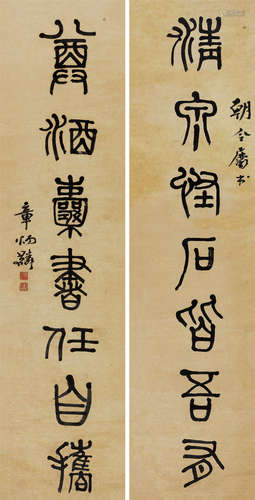 清泉怪石皆吾有
朝全属书
尊酒囊書任自攜
章炳麟